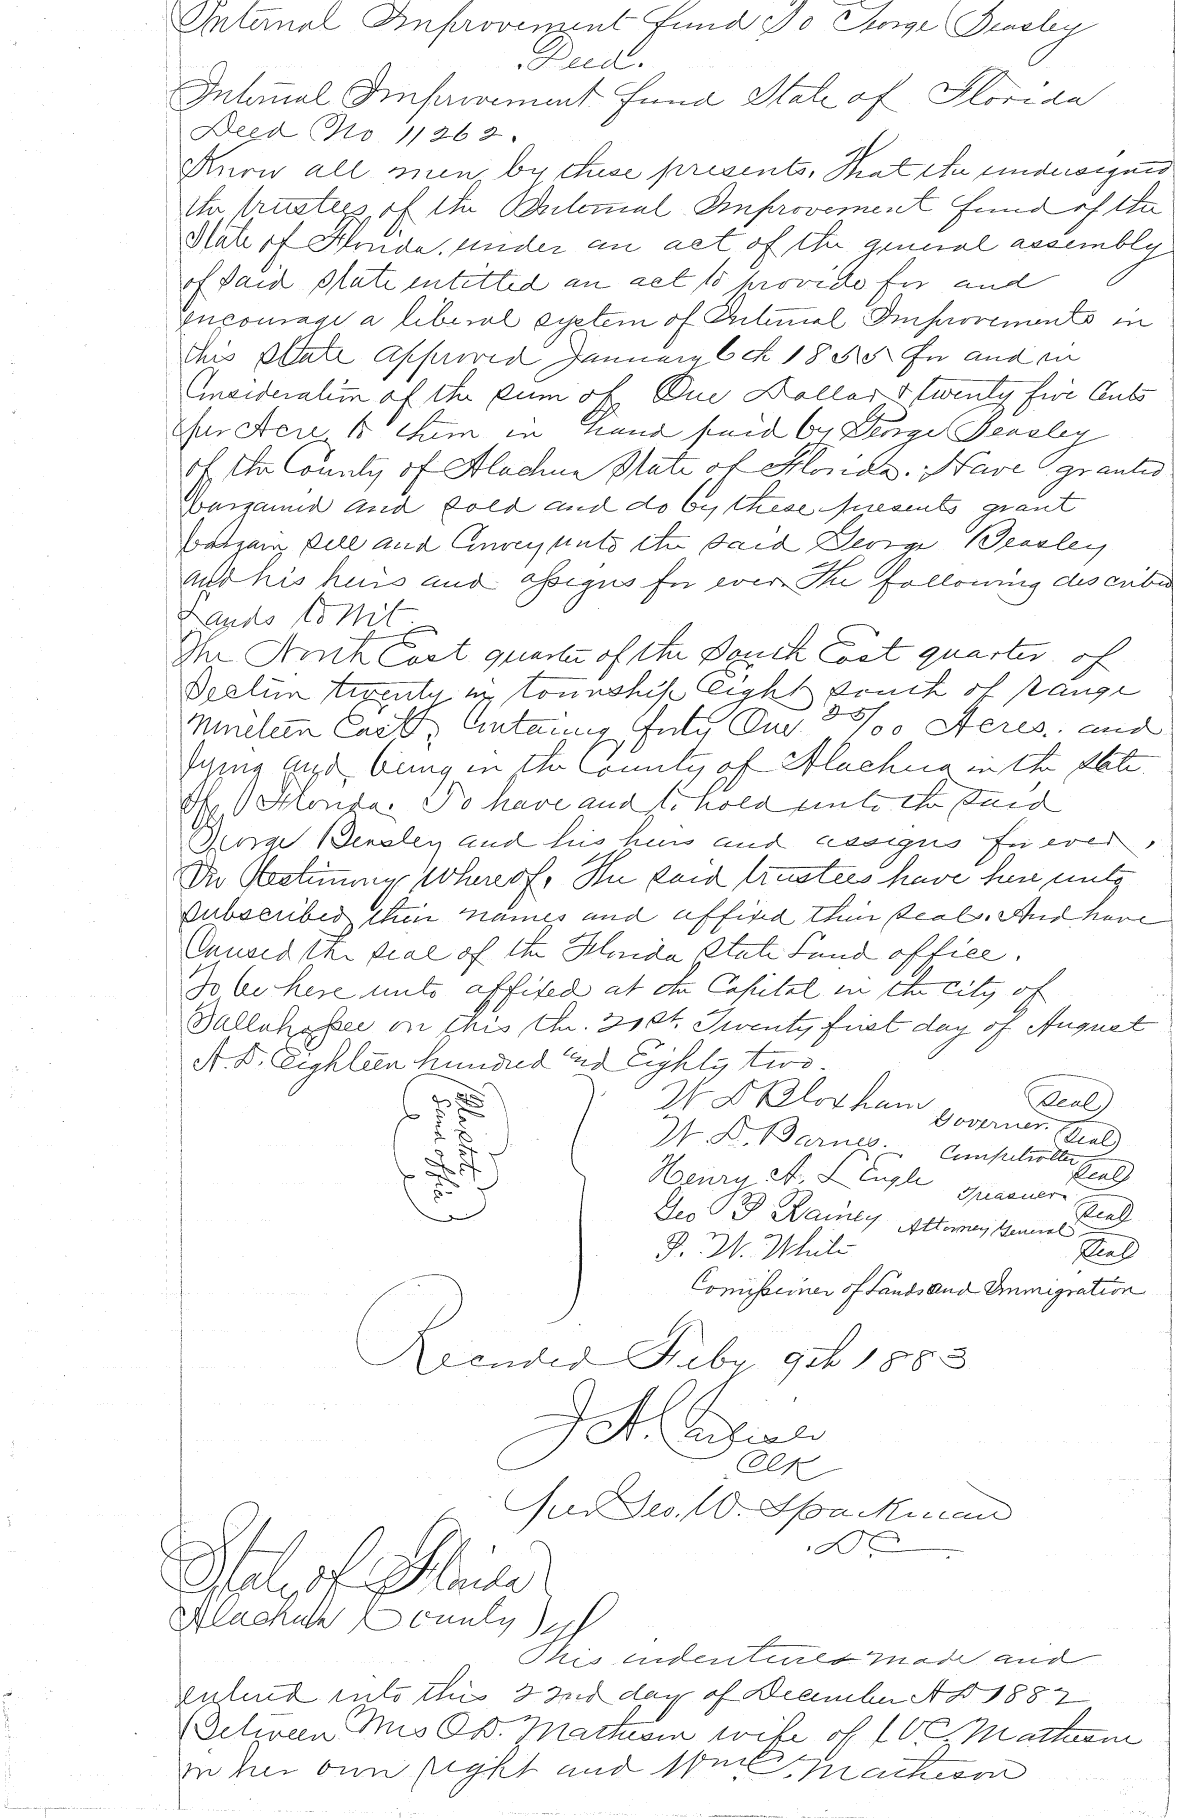 Internal Improvement Fund To George Beasley
Deed.
Internal Improvement Fund State of Florida
Deed No 11262.
Know all men by these presents, That the undersigned
the trustees of the Internal Improvement fund of the
State of Florida. under an act of the general assembly
of said State entitled an act to provide for and
encourage a liberal system of Internal Improvements in
this State approved January 6th 1855 for and in
Consideration of the sum of One Dollar & twenty five Cents
per Acre to them in hand paid by George Beasley
of the County of Alachua State of Florida. Have granted
bargained and sold and do by these presents grant
bargain sell and Convey unto the said George Beasley
and his heirs and assigns for ever The following described
Lands to Wit
The North East quarter of the South East quarter of
Section twenty in township Eight south of range
Nineteen East, Containing forty One 35/100 Acres. and
lying and being in the County of Alachua in the State
of Florida. To have and to hold unto the said
George Beasley and his heirs and assigns for ever.
In Testimony Whereof. The said trustees have here unto
subscribed their names and affixed their seals. And have
Caused the seal of the Florida State Land office.
To be here unto affixed at the Capital in the City of
Tallahassee on this the. 21st. Twenty first day of August
A.D. Eighteen hundred and Eighty two.
W D Bloxham Governer. Seal
W. D. Barnes. Comptroller Seal
Henry A. L Engle Treasuer. Seal
Geo P Rainey Attorney General Seal
P. W. White Seal
Comissiner of Lands and Immigration
Fla State
Land office
Recorded Feby 9th 1883
J A. Carlisle
Clk
per Geo. W. Spackman
D C
State of Florida
Alachua County
This indentured made and
entered into this 22nd day of December A D 1882
Between Mrs O D. Matheson wife of W C. Matheson
in her own right and Wm C. Matheson